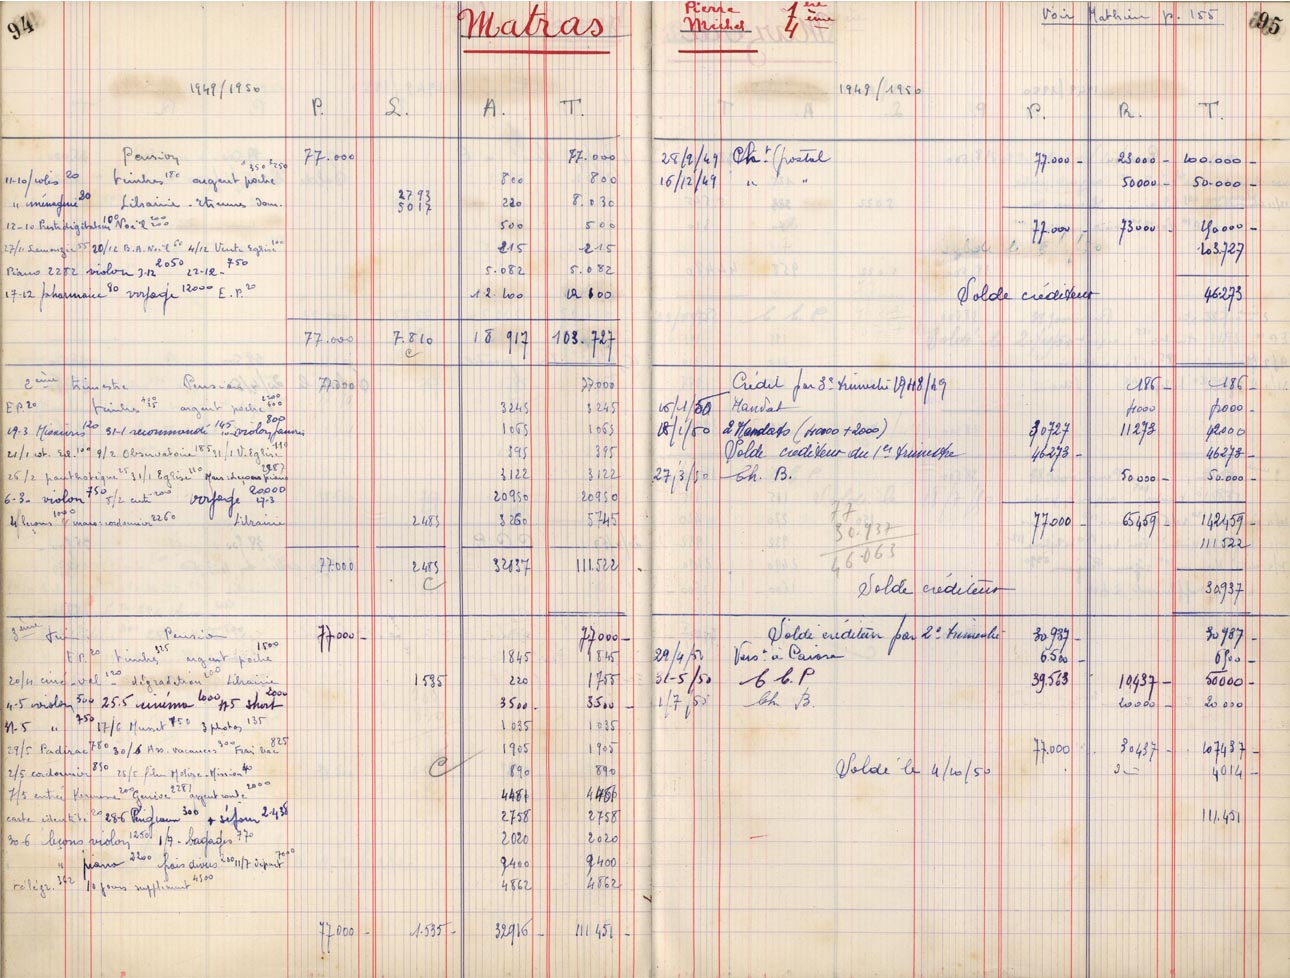 94
Matras
1949/1950
P. L. A. T.
Pension 77.000 77.000
timbres 180 argent poche
11-10/colis 20 800 800
" ménagère 20 Librairie - Etrennes dom. 2793 5017 220 8.030
12-10 Prestidigitateur 100 Noël 500 500
27/11 20/12 B.A. Noël 50 4/12 Vente Eglise 100 215 215
Piano 2282 violon 3.12 2050 22-12- 750 5.082 5.082
17-12 pharmacie 80 voyage 12000 E.P. 20 12.100 12.100
77.000 7.810 18 917 103.727
2ème trimestre Pension 77.000 77.000
E.P. 20 timbres argent poche 3245 3245
19-3 Missions 120 31-1 recommandé 145 violon janvier 800 1065 1065
9/2 Observatoire 185 31/1 V. Eglise 110 395 395
31/1 Eglise 110 Mars leçons piano 3122 3122
6-3- violon 750 5/2 200 voyage 20000 17-3 20950 20950
4 leçons 1000 mars cordonnier 2260 Librairie 2485 3260 5745
77.000 2485 32037 111.522
3ème trim Pension 77000 - 77.000 -
E.P. 20 timbres 325 argent poche 1500 1845 1845
20/4 ciné - vél - 120 dégradation 100 Librairie 1535 220 1755
4-5 violon 500 25.5 cinéma 1000 short 2000 3500 - 3500 -
31-5 " 750 17/6 Musset 150 3 photos 135 1035 1035
29/5 Padirac 780 30/6 Ass. vacances 300 825 1905 1905
2/5 cordonnier 850 25/5 film Molière-Mission 40 890 890
7/5 entrée Kermesse 200 Genève 2281 argent route 2000 4481 4481
carte identité 20 28-6 300 + séjour 2.438 2758 2758
30-6 leçons violon 1250 1/7 - bagages 770 2020 2020
" piano 2200 frais divers 200 11/7 départ 7000 9400 9400
télégr. 362 10 jours supplément 4500 4862 4862
77000 - 1.535 - 32916 - 111 451 -
Pierre 1ère
Michel 4ème
Voir Mathieu p. 155
95
1949/1950
P. R. T.
28/9/49 Cht postal 77.000 - 23000 - 100.000 -
16/12/49 " " 50000 - 50.000 -
77.000 - 73000 - 150000 -
103.727
Solde créditeur 46.273
Crédit par 3e trimestre 1948/49 186 - 186 -
16/1/50 Mandat 4000 4000 -
18/1/50 2 Mandats (40000+2000) 30727 11273 42000
Solde créditeur du 1er trimestre 46273 - 46273 -
27/3/50 Ch. B. 50000 - 50.000 -
77
30.937
46.063
77000 - 65459 - 142459 -
111.522
Solde créditeur 30937
Solde créditeur par 2e trimestre 30937 - 30937 -
29/4/50 Verst à Caisse 6.500 - 6500 -
31-5/50 C C. P 39.563 10437 - 50000 -
1/7/50 Ch. B. 20000 - 20 000
77.000 - 30437 - 107437 -
Soldé le 4/10/50 4014 -
111.451